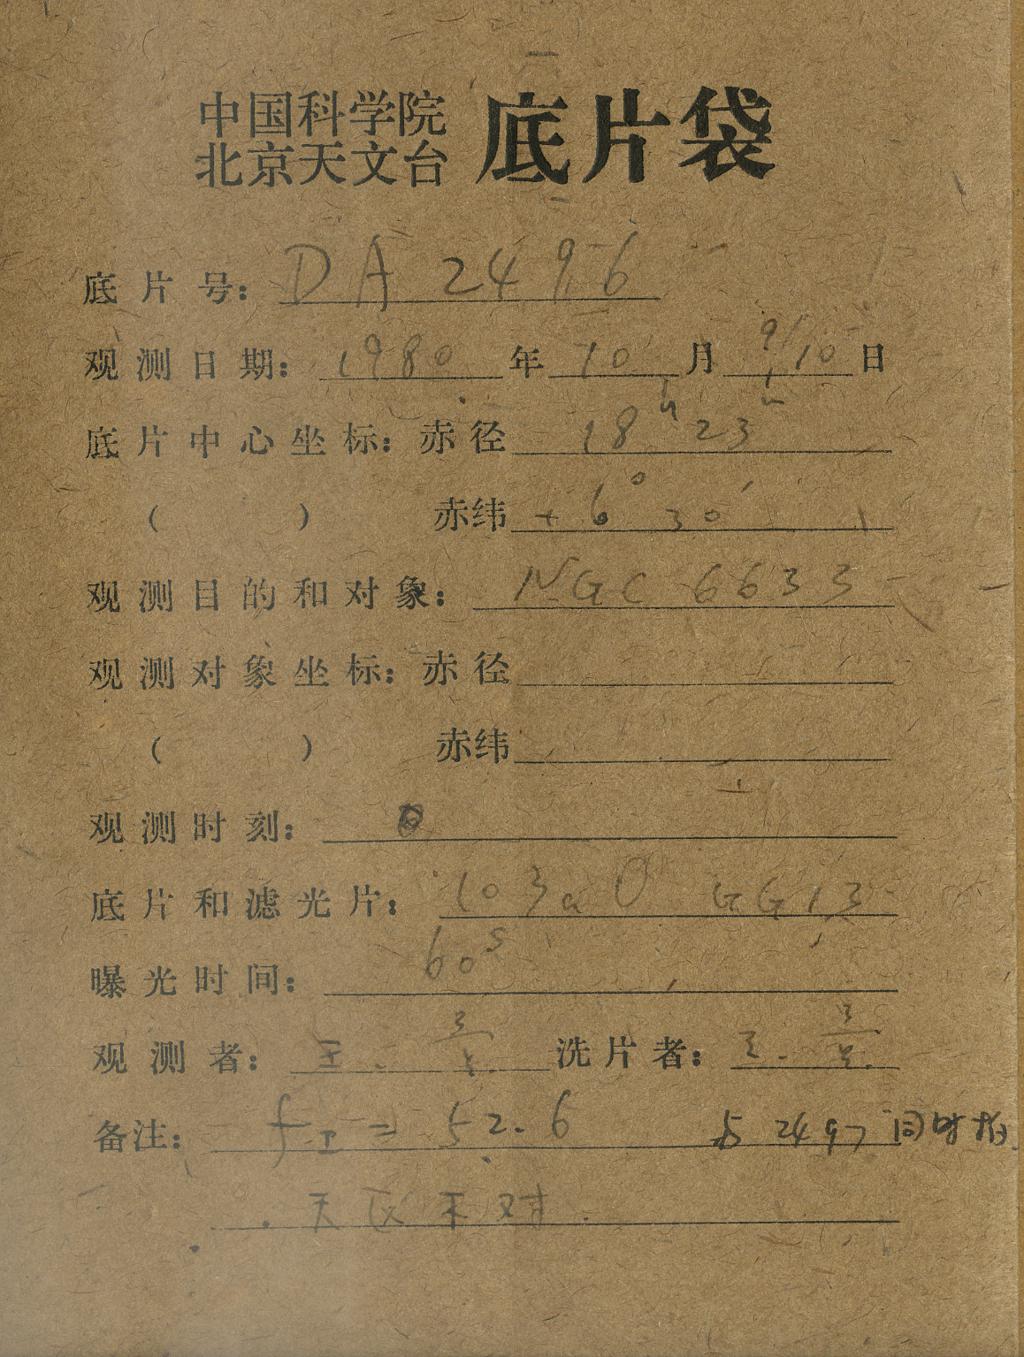 中国科学院
北京天文台 底片袋
底片号: DA 2496
观测日期: 1980 年 10 月 9/10 日
底片中心坐标: 赤径 18h 23m
( ) 赤纬 +6° 30′
观测目的和对象: NGC 6633
观测对象坐标: 赤径
( ) 赤纬
观测时刻:
底片和滤光片: 103aO GG13
曝光时间: 60s
观测者: 王. 洗片者: 王.
备注: fI = 52.6 与 2497 同时拍
天区不对.